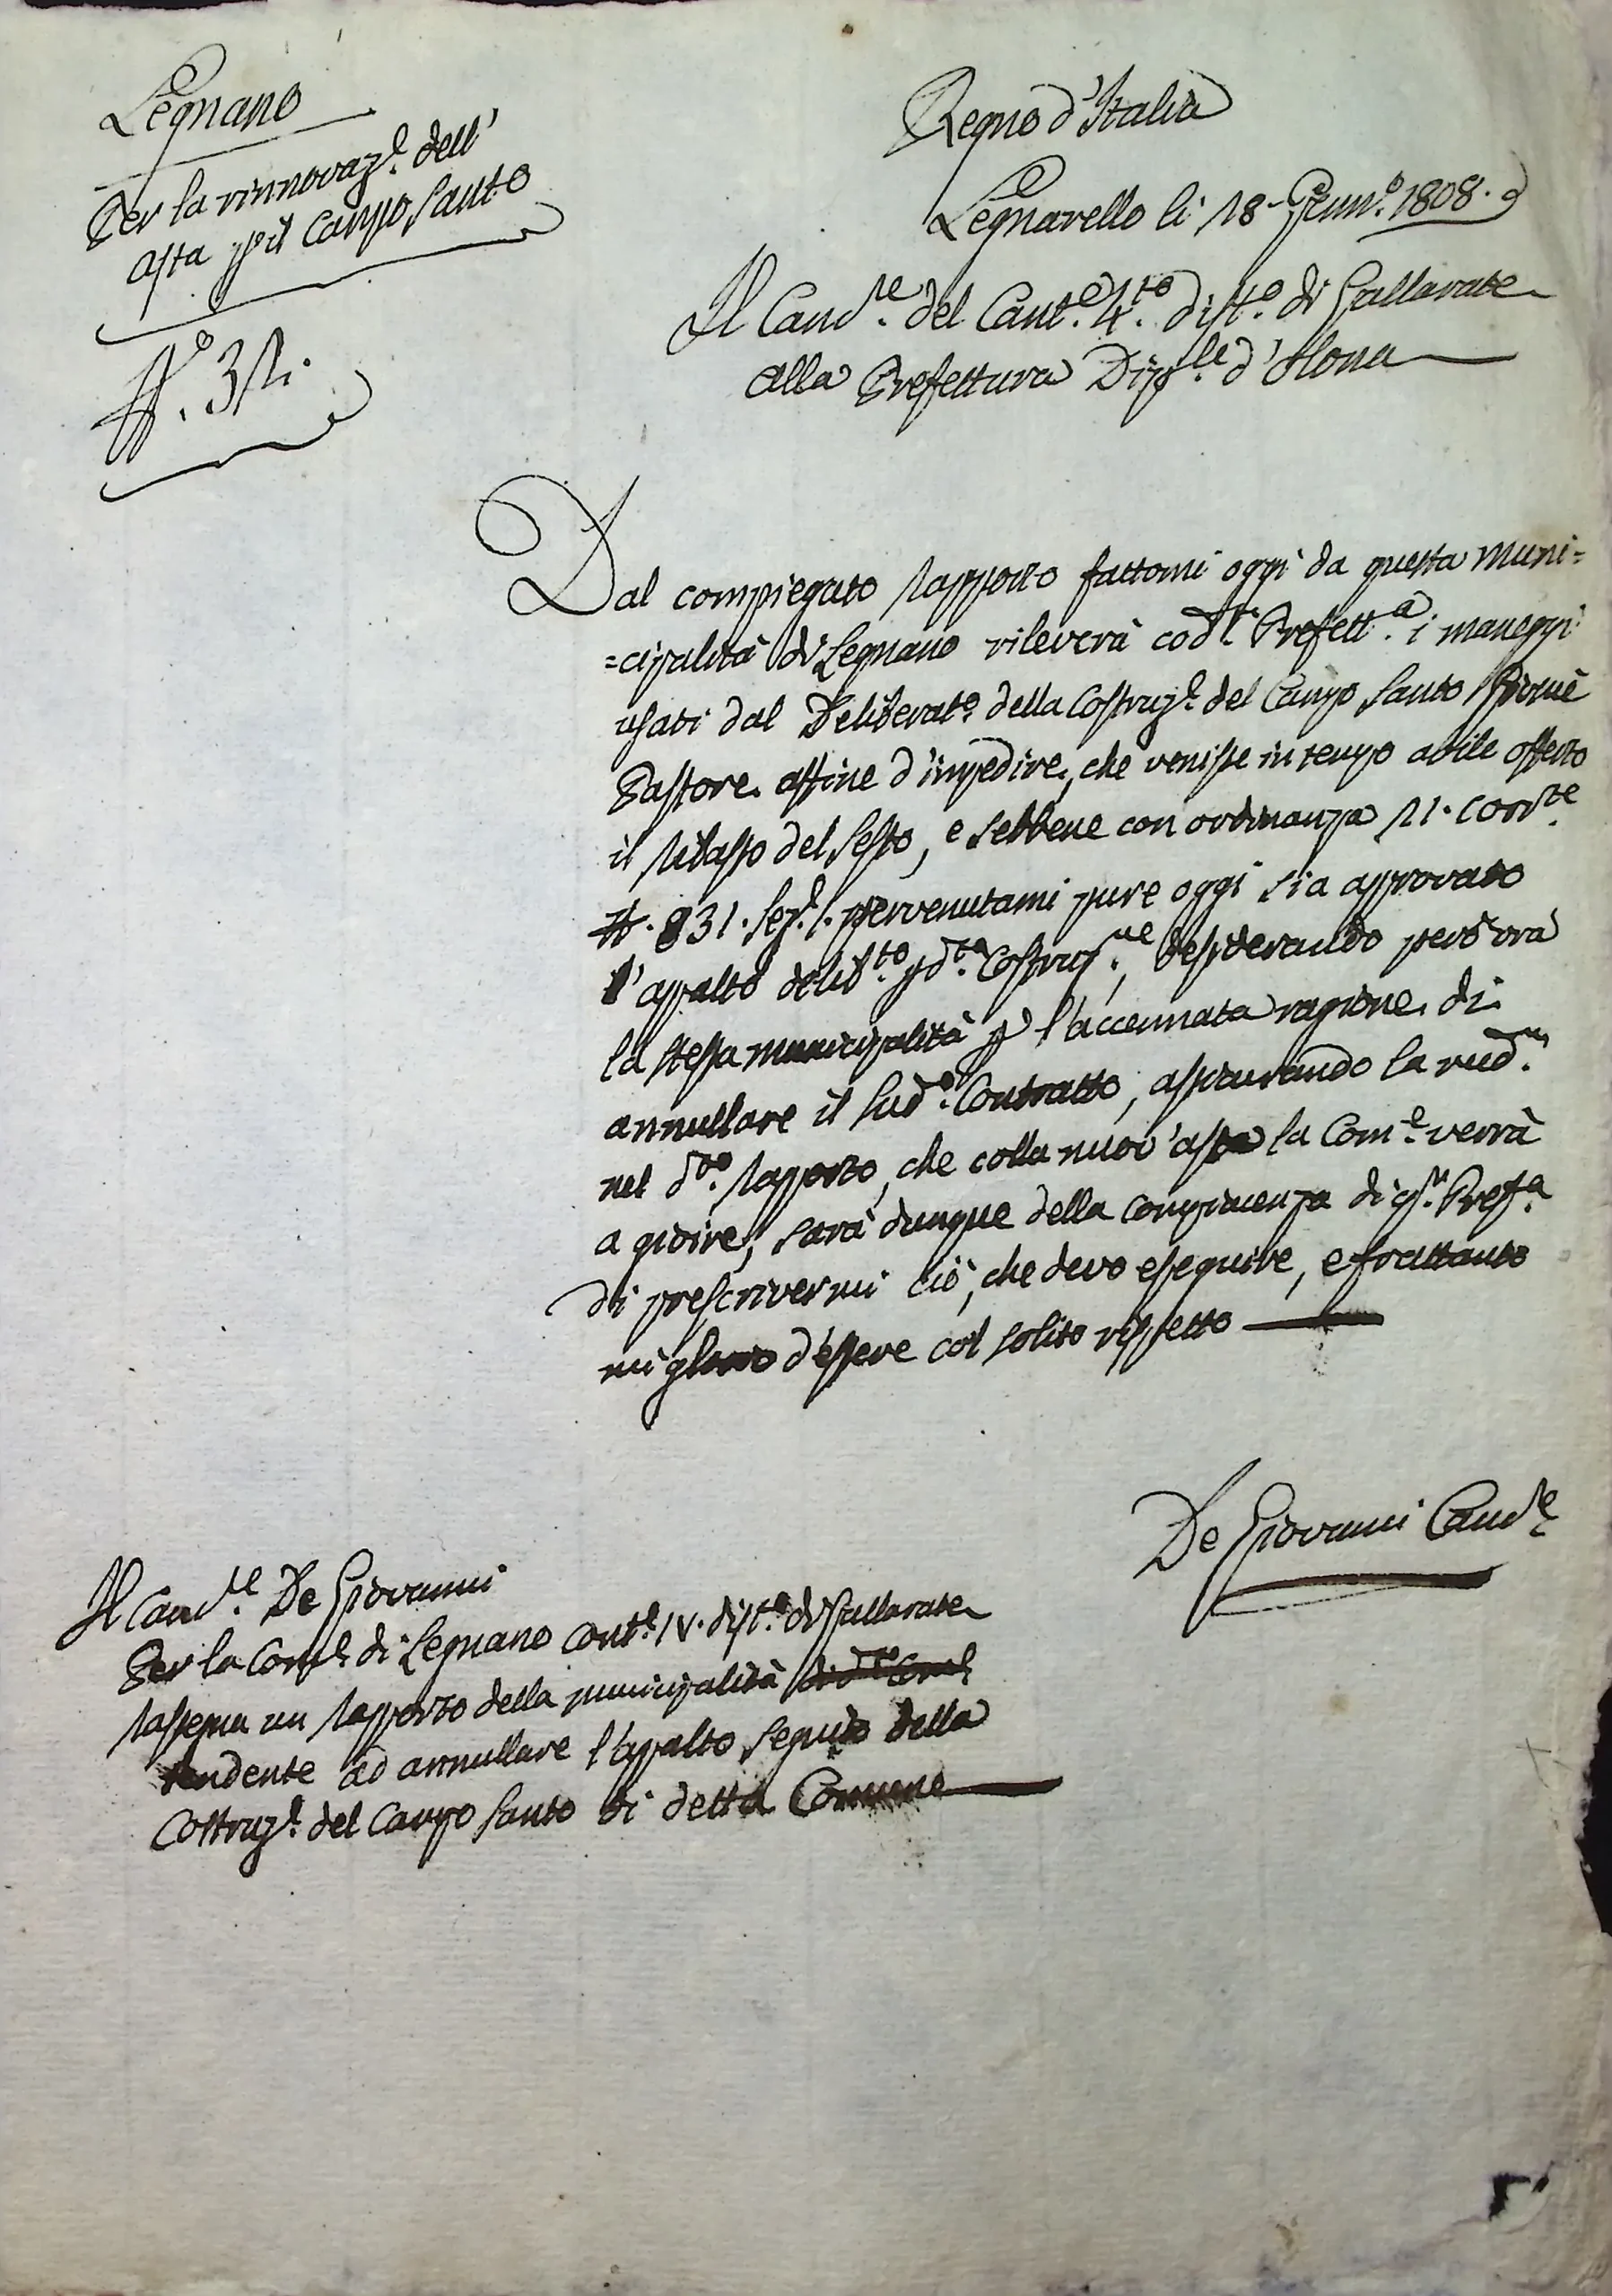 Legnano
Per la rinnovaz.e dell'
asta p il Campo Santo
N.o
Regno d'Italia
Legnarello li 18 Genn.o 1808.
Il Canc.re del Cant.e 4.to dist.o di Gallarate
alla Prefettura Dip.le d'Olona
Dal compiegato rapporto fattomi oggi da questa Muni=
=cipalità di Legnano rileverà cod.a Prefett.a i maneggi
usati dal Deliberat.o della Costruz.e del Campo Santo Giosuè
Pastore affine d'impedire, che venisse in tempo abile offerto
il ribasso del Sesto, e sebbene con ordinanza 11. corr.te
N. 831. Sez. 1. pervenutami pure oggi sia approvato
l'appalto delib.to p d.ta Costruz.ne, desiderando però ora
la stessa municipalità p l'accennata ragione di
annullare il sud.o Contratto, assicurando la med.a
nel d.to rapporto, che colla nuov'asta la Com.e verrà
a gioire, sarà dunque della compiacenza di q.a Pref.a
di prescrivermi ciò, che devo eseguire, e frattanto
mi glorio d'essere col solito rispetto
De Giovanni Canc.re
Il Canc.re De Giovanni
Per la Com.e di Legnano Cant.e IV. dist.o di Gallarate
rassegna un rapporto della municipalità
tendente ad annullare l'appalto seguito della
Costruz.e del Campo Santo di detta Comune